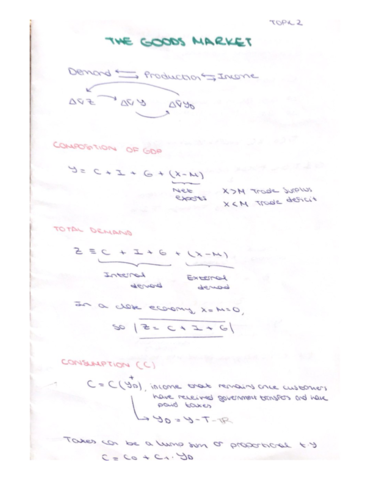 TOPIC 2
THE GOODS MARKET
Demand ⇆ Production ⇆ Income
ΔZ ΔY ΔYD
COMPOSITION OF GDP
Y = C + I + G + (X-M)
Net exports
X>M Trade surplus
X<M Trade deficit
TOTAL DEMAND
Z ≡ C + I + G + (X-M)
Internal demand
External demand
In a close economy, X=M=0,
so Z = C + I + G
CONSUMPTION (C)
C = C(YD), income that remains once customers
have received government transfers and have
paid taxes
→ YD = Y - T - TR
Taxes can be a lump sum or proportional to Y
C = C0 + C1 · YD